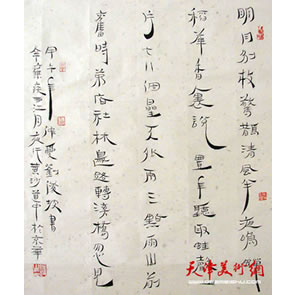 明月別枝驚鵲清風半夜鳴蟬
稻華香裏說豐年聽取蛙聲一
片七八個星天外兩三點雨山前
舊時茅店社林邊路轉溪橋忽見
甲午年仲夏劉書
辛棄疾西江月夜行黃沙道中於京華
天津美術網